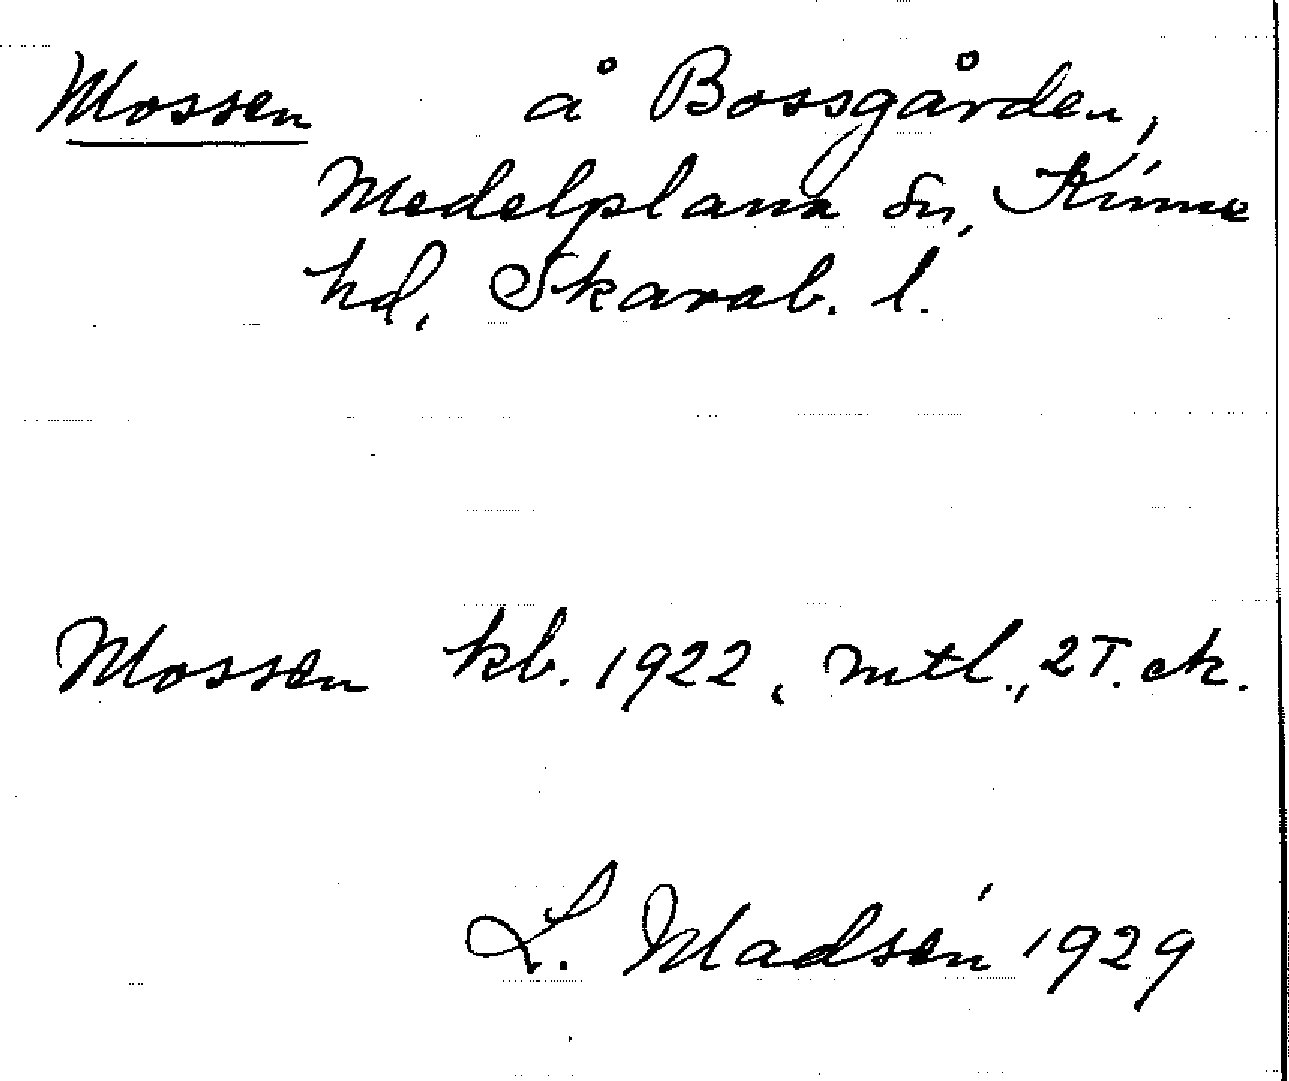 Mossen å Bossgården,
Medelplana sn, Kinne
hd, Skarab. l.
Mossen kb. 1922, mtl., 2T. ek.
L. Madsén 1929